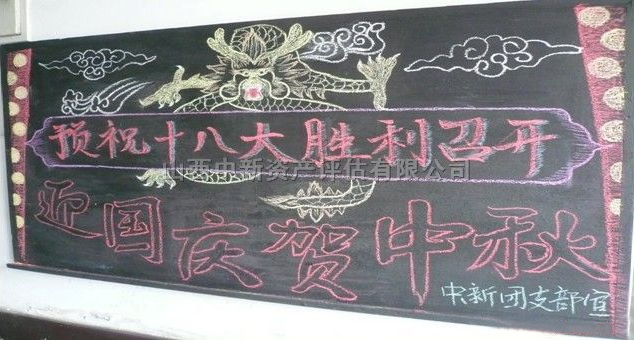 预祝十八大胜利召开
山西中新资产评估有限公司
迎国庆贺中秋
中新团支部宣